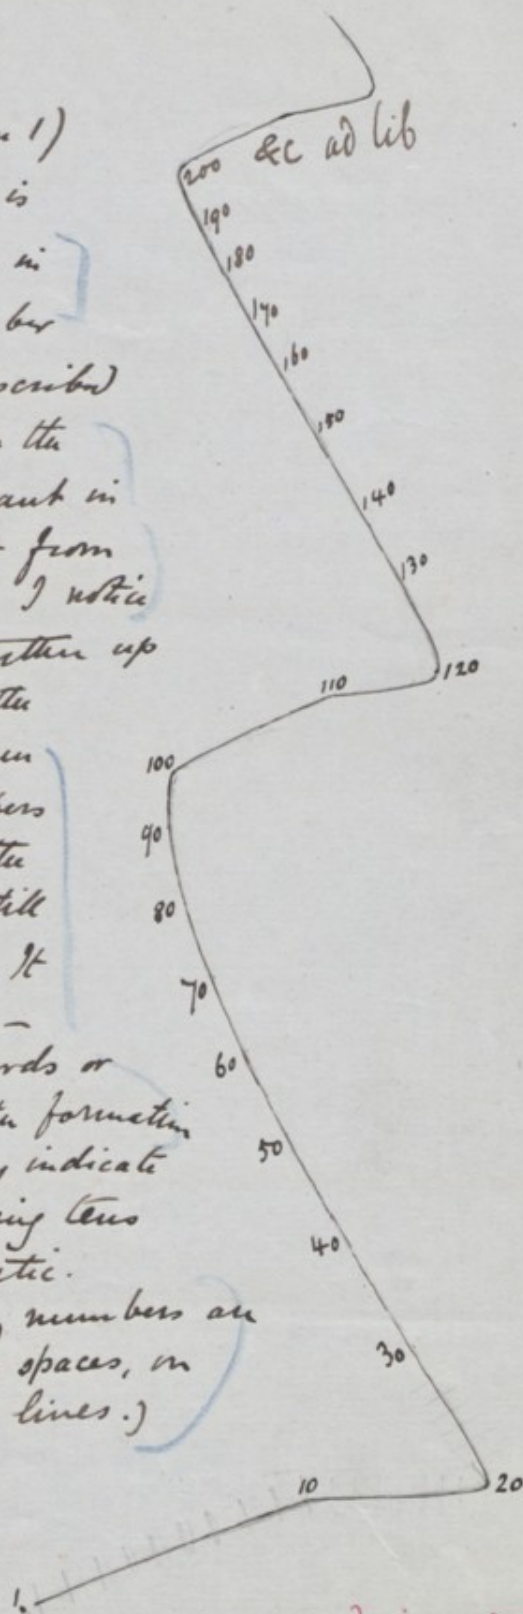 1)
is
in
ber
scribed
the
ant in
from
I notice
up
the
en
bers
the
till
It
ords or
formation
indicate
ing tens
etic.
numbers are
spaces, on
lines.)
&c ad lib
200
190
180
170
160
150
140
130
120
110
100
90
80
70
60
50
40
30
20
10
1.